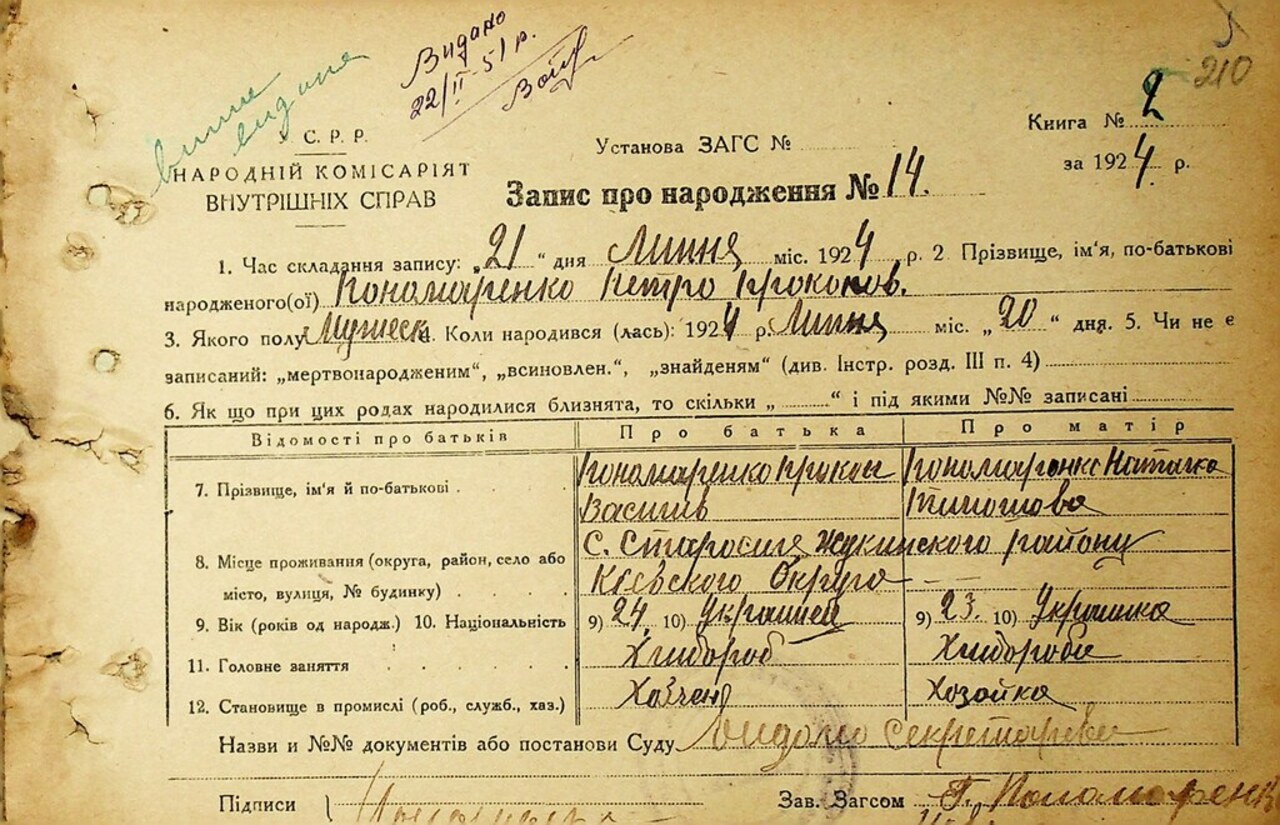 Видано
22/II 51 р.
210
вище видана
У.С.Р.Р.
НАРОДНІЙ КОМІСАРІЯТ
ВНУТРІШНІХ СПРАВ
Установа ЗАГС №
Книга № 2
за 1924 р.
Запис про народження № 14.
1. Час складання запису: „21“ дня Липня міс. 1924 р. 2 Прізвище, ім'я, по-батькові
народженого(ої) Пономаренко Петро Прокопов.
3. Якого полу Мужеск 4. Коли народився (лась): 1924 р. Липня міс. „20“ дня. 5. Чи не є
записаний: „мертвонародженим“, „всиновлен.“, „знайденям“ (див. Інстр. розд. III п. 4)
6. Як що при цих родах народилися близнята, то скільки „ “ і під якими №№ записані
Відомості про батьків Про батька Про матір
7. Прізвище, ім'я й по-батькові Пономаренко Прокоп Пономаренко Наталка
Васил. Тимошова
8. Місце проживання (округа, район, село або С. Старосілля Жукинского району
місто, вулиця, № будинку) Киевского Округа
9. Вік (років од народж.) 10. Національність 9) 24. 10) Украінец 9) 23. 10) Украинка
11. Головне заняття Хлібороб Хлібороба
12. Становище в промислі (роб., служб., хаз.) Хазяен Хозяйка
Назви и №№ документів або постанови Суду видано
Підписи Зав. Загсом Г. Пономаренк